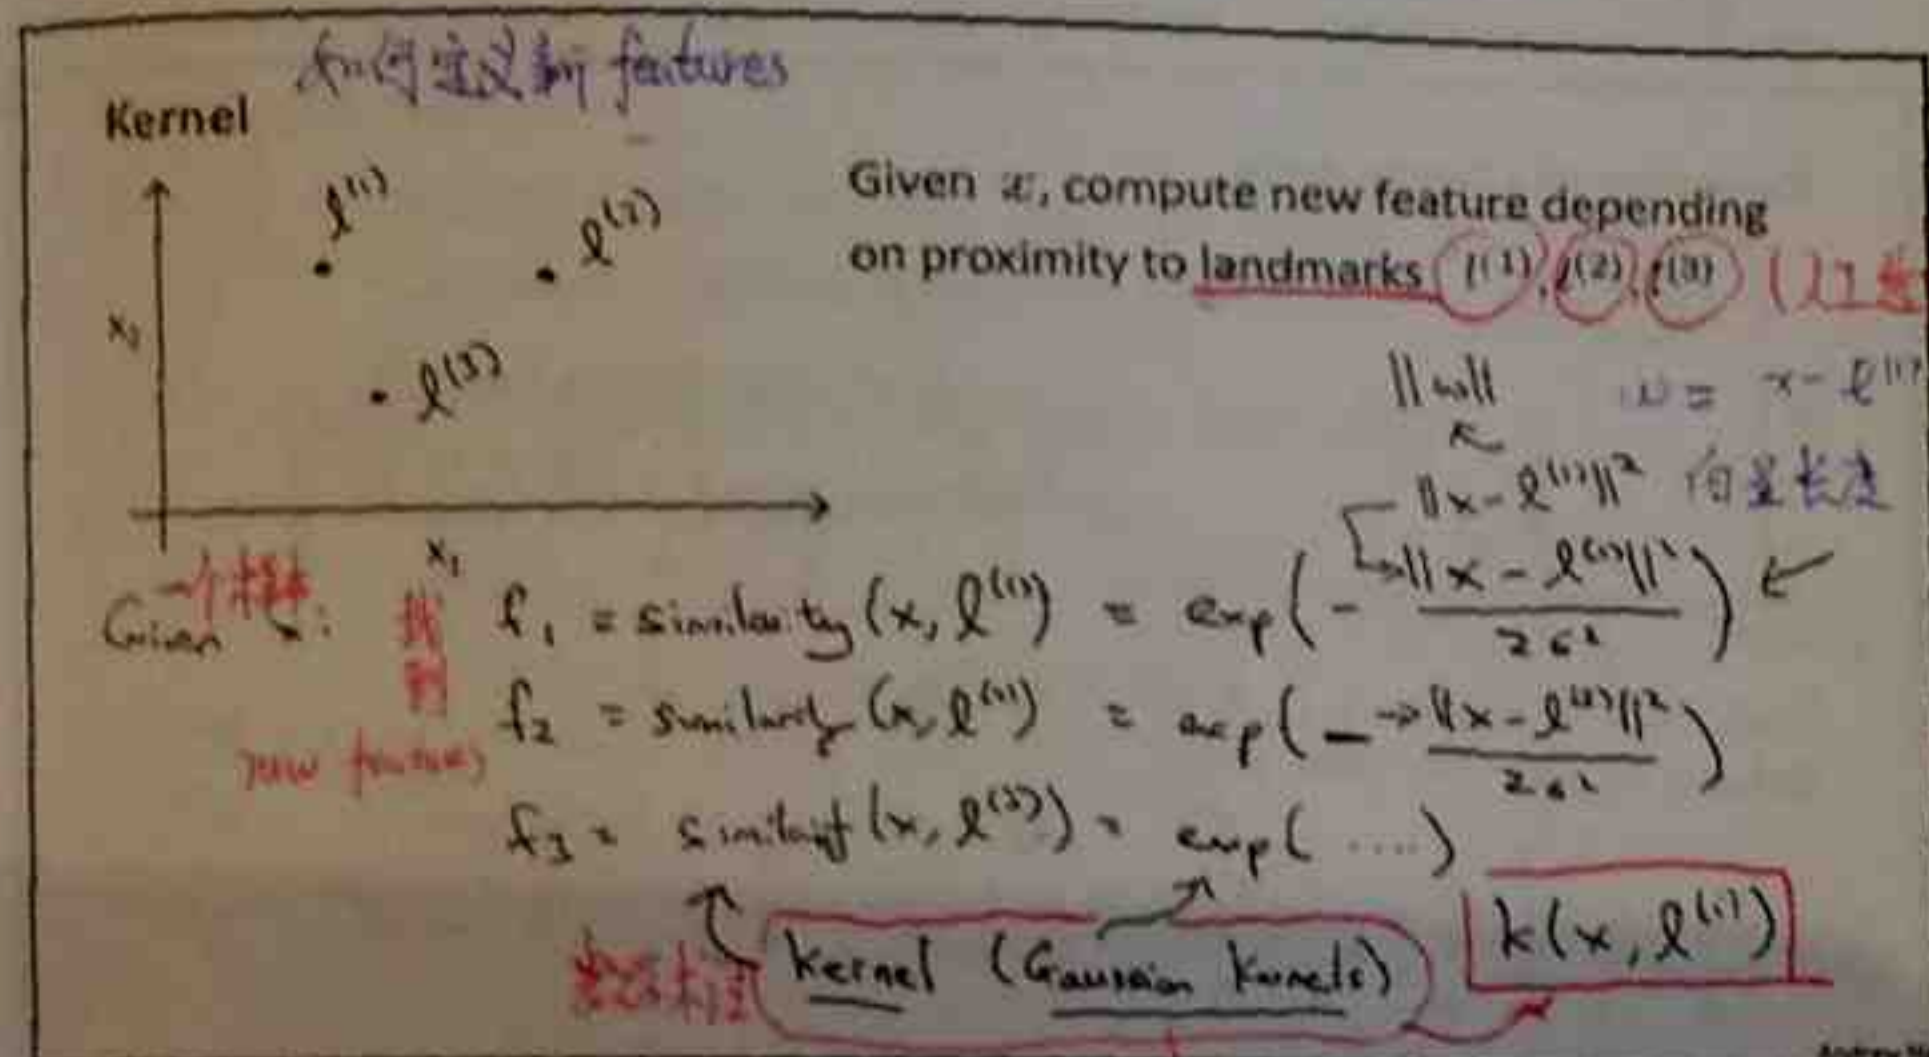 如何定义新 features
Kernel
l^(1)
l^(2)
Given x, compute new feature depending
on proximity to landmarks l^(1), l^(2), l^(3)
x₂
l^(3)
||w|| w = x - l^(1)
||x - l^(1)||² 向量长度
x₁
一个样本
Given x: 找到 f₁ = similarity(x, l^(1)) = exp(- ||x - l^(1)||² / 2σ²)
f₂ = similarity(x, l^(2)) = exp(- ||x - l^(2)||² / 2σ²)
new features
f₃ = similarity(x, l^(3)) = exp(....)
k(x, l^(i))
kernel (Gaussian kernels)